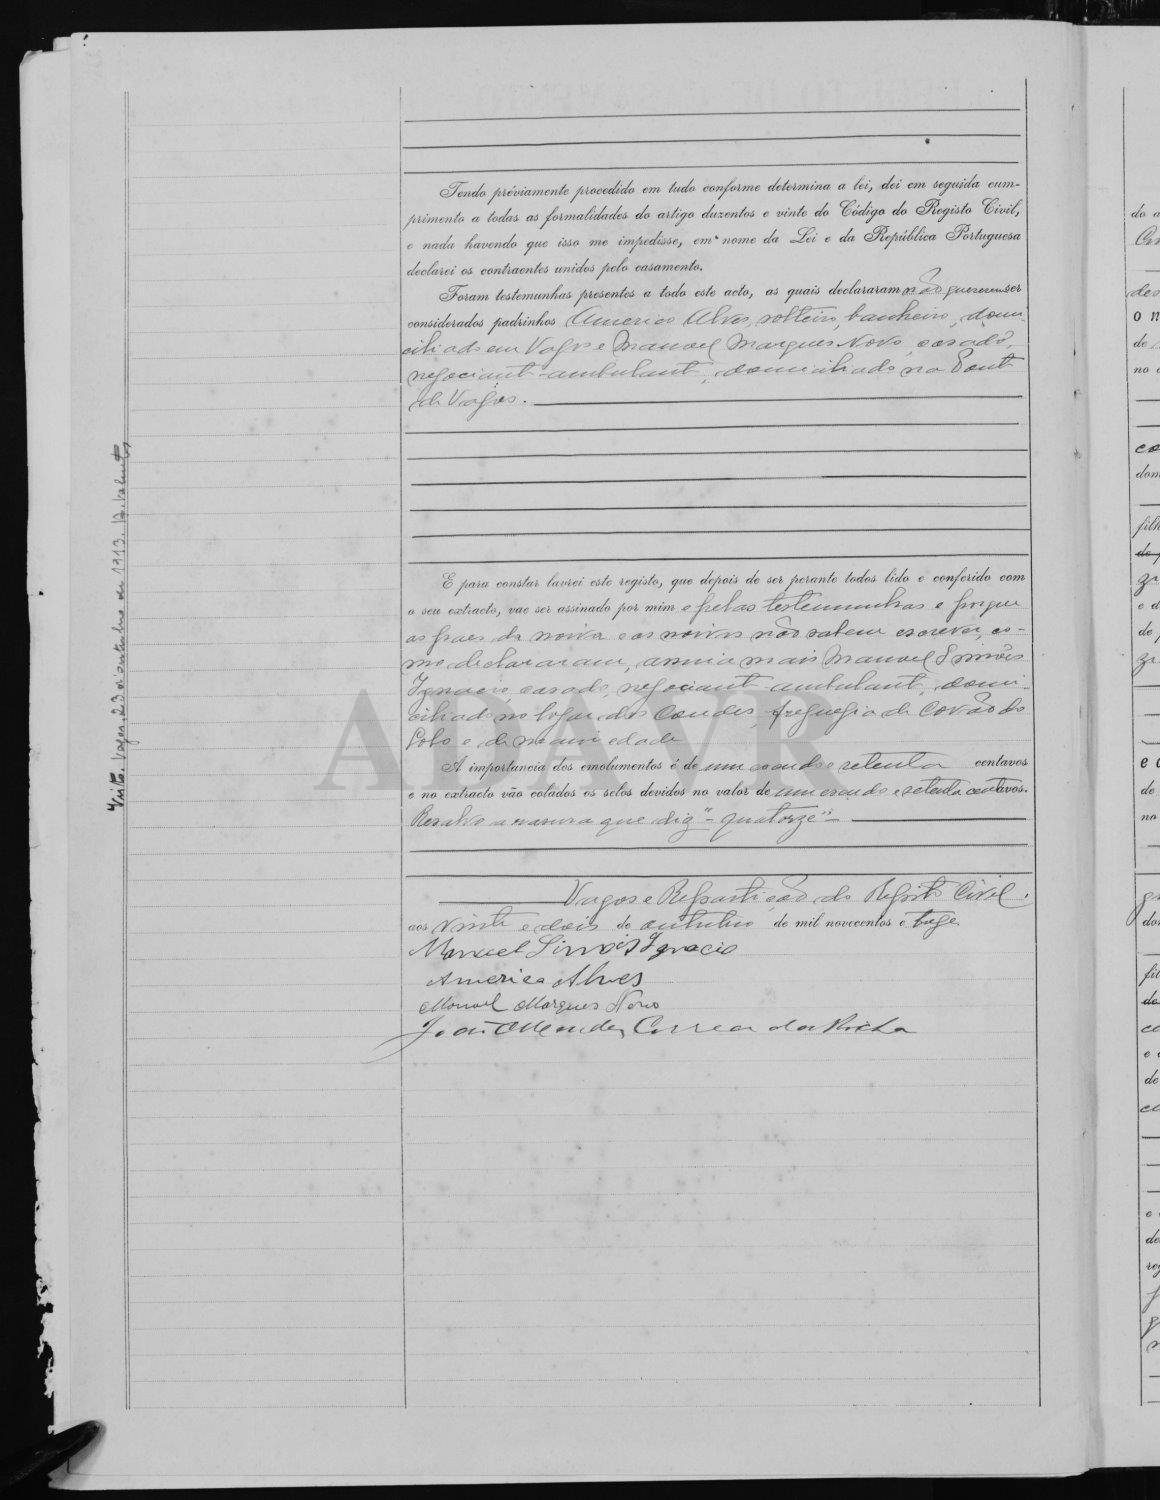 Tendo préviamente procedido em tudo conforme determina a lei, dei em seguida cum-
primento a todas as formalidades do artigo duzentos e vinte do Código do Registo Civil,
e nada havendo que isso me impedisse, em nome da Lei e da República Portuguesa
declarei os contraentes unidos pelo casamento.
Foram testemunhas presentes a todo este acto, as quais declararam não quererem ser
considerados padrinhos Americo Alves, solteiro, banheiro, domi-
ciliado em Vagos e Manoel Marques Novo, casado,
negociante ambulante, domiciliado na Ponte
de Vagos.
E para constar lavrei este registo, que depois de ser perante todos lido e conferido com
o seu extracto, vae ser assinado por mim e pelas testemunhas e porque
os paes da noiva e os noivos não sabem escrever, co-
mo declararam, assina mais Manoel Simões
Ignacio casado, negociante ambulante, domi-
ciliado no logar dos Condes, freguezia de Covão do
Lobo e de maior edade
A importancia dos emolumentos é de um escudo e setenta centavos
e no extracto vão colados os selos devidos no valor de um escudo e setenta centavos.
Resalvo a rasura que diz "quatorze"
Vagos e Repartição do Registo Civil.
aos vinte e dois de outubro de mil novecentos e treze
Manuel Simões Ignacio
Americo Alves
Manoel Marques Novo
João Mendes Correa da Rocha
Visto. Vagos, 23 d'outubro de 1913.
ADAVR
do a
des
o n
de
no
co
dom
filh
e d
de p
e
de
no
dos
fil
e
de
e
de
reg